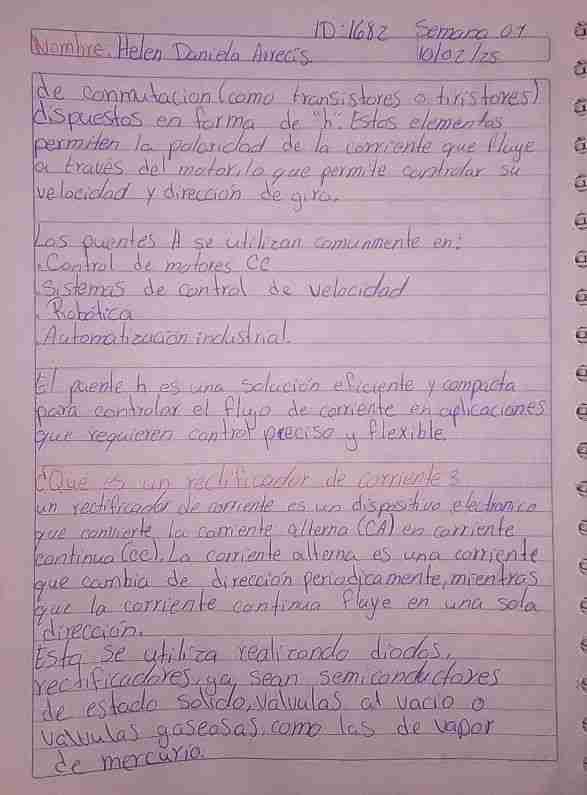 ID:1682 Semana 01
Nombre. Helen Daniela Arrecis. 10/02/25
de conmutacion (como transistores o tiristores)
dispuestos en forma de "h". Estos elementos
permiten la polaridad de la corriente que fluye
a través del motor, lo que permite controlar su
velocidad y dirección de giro.
Los puentes H se utilizan comunmente en:
. Control de motores CC
. Sistemas de control de velocidad
. Robótica
. Automatización industrial.
El puente h es una solución eficiente y compacta
para controlar el flujo de corriente en aplicaciones
que requieren control preciso y flexible.
¿Que es un rectificador de corriente?
un rectificador de corriente es un dispositivo electronico
que convierte la corriente alterna (CA) en corriente
continua (cc). La corriente alterna es una corriente
que cambia de dirección periodicamente, mientras
que la corriente continua fluye en una sola
dirección.
Esta se utiliza realizando diodos,
rectificadores, ya sean semiconductores
de estado solido, valvulas al vacio o
valvulas gaseosas como las de vapor
de mercurio.